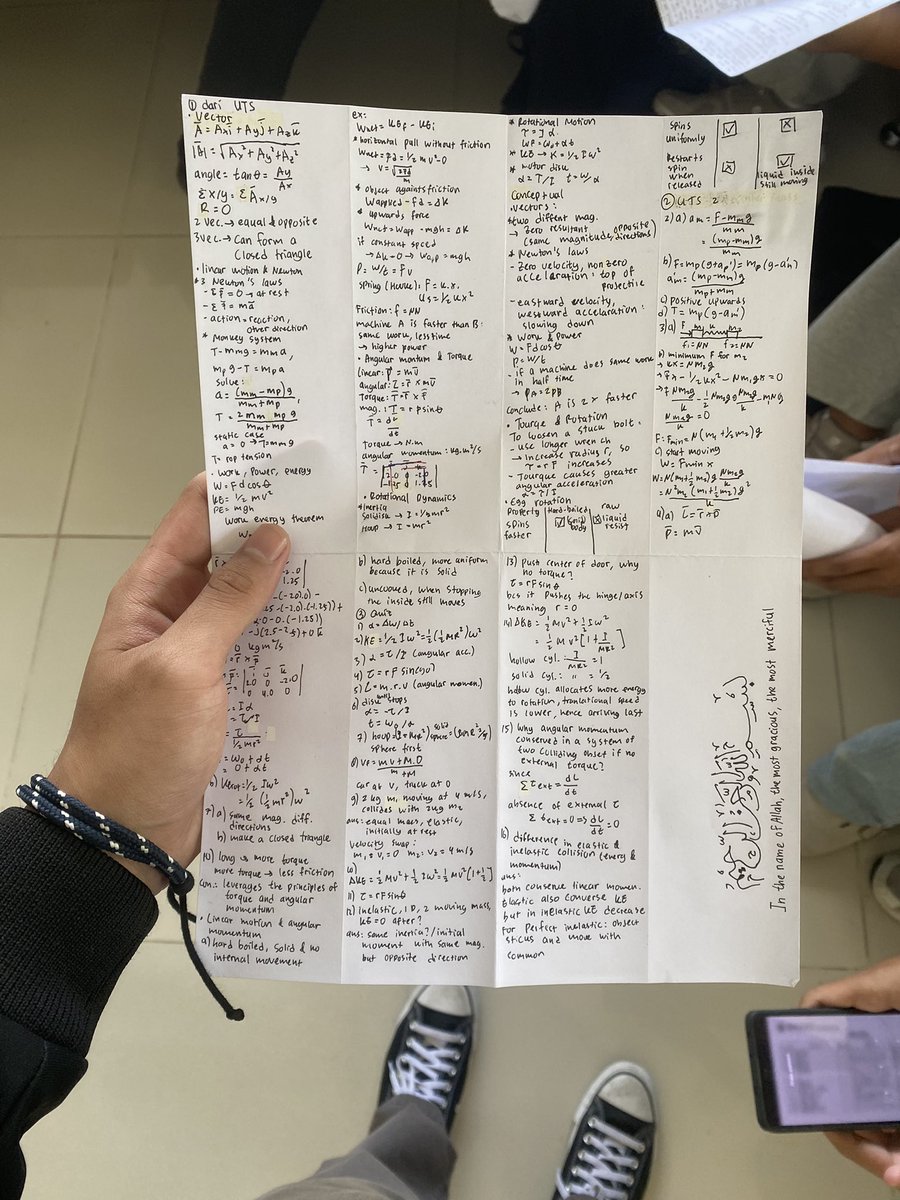 ① dari UTS
• Vector
A̅ = Axi̅ + Ayj̅ + Azk̅
|A̅| = √Ax² + Ay² + Az²
angle = tanθ = Ay/Ax
ΣX/y = ΣA̅x/y
R = 0
2 vec. → equal & opposite
3 vec. → can form a
closed triangle
• linear motion & Newton
* 3 Newton's laws
- ΣF̅ = 0 → at rest
- ΣF̅ = ma̅
- action = reaction,
other direction
* Monkey system
T - mmg = mma,
mpg - T = mpa
solve:
a = (mm - mp)g / mm + mp,
T = 2 mm mp g / mm + mp
static case
a = 0 → T = mmg
T = rop tension
• work, power, energy
W = Fd cosθ
KE = 1/2 mv²
PE = mgh
work energy theorem
ex:
Wnet = KEf - KEi
* horizontal pull without friction
Wnet = Fd = 1/2 mv² - 0
* object againts friction
Wapplied - fd = ΔK
* upwards force
Wnet = Wapp - mgh = ΔK
if constant speed
→ ΔK = 0 → Wapp = mgh
P = W/t = Fv
spring (Hooke): F = k.x.
Us = 1/2 kx²
Friction: f = μN
machine A is faster than B:
same work, less time
→ higher power
• Angular montum & Torque
linear: p̅ = mv̅
angular: L̅ = r̅ × mv̅
Torque: T̅ = r̅ × F̅
mag.: T̅ = r p sinθ
T̅ = dL̅/dt
Torque → N.m
angular momentum: kg.m²/s
• Rotational Dynamics
* inertia
soliddisk → I = 1/2mr²
hoop → I = mr²
* Rotational Motion
τ = Iα
ωf = ω0 + αt
* KE → K = 1/2 Iω²
* rotor disk
α = T/I t = ω/α
Conceptual
• vectors:
* two diffent mag.
→ zero resultant opposite
(same magnitude, directions)
* Newton's laws
- Zero velocity, non zero
acceleration: top of
projectile
- eastward velocity,
westward accelaration:
slowing down
* Work & power
W = Fd cosθ
P = W/t
- if a machine does same work
in half time
→ PA = 2PB
conclude: A is 2x faster
• Tourge & Rotation
To loosen a stuck bolt
- use longer wrench
→ increase radius r, so
τ = rF increases
- Tourque causes greater
angular acceleration
α = T/I
• Egg rotation
Property | Hard-boiled | raw
spins faster | ☑ rigid body | ☒ liquid resist
spins uniformly | ☑ | ☒
Restarts spin when released | ☒ | ☑ liquid inside still moving
② UTS 2
2) a) am = F - mmg / mm
= (mp - mm)g / mm
b) F = mp(g + ap') = mp(g - am')
am' = (mp - mm)g / mp + mm
c) positive upwards
d) T = mp(g - am')
3) a)
b) minimum F for m2
F = Fmin = N(m1 + 1/2 m2)g
c) start moving
W = Fmin x
4) a) L̅ = r̅ × p̅
p̅ = mv̅
0 kgm²/s
= r̅ × p̅
= Iα
= τ/I
= ω0 + αt
= 0 + αt
6) Krot = 1/2 Iω²
= 1/2 (1/2 mr²)ω²
7) a) same mag. diff.
directions
b) make a closed triangle
10) long → more torque
more torque → less friction
con.: leverages the principles of
torque and angular
momentum
• Linear motion & angular
momentum
a) hard boiled, solid & no
internal movement
b) hard boiled, more uniform
because it is solid
c) uncooked, when stopping
the inside still moves
③ Quiz
1) α = Δω/Δt
2) KE = 1/2 Iω² = 1/2 (1/2 MR²)ω²
3) α = τ/I (angular acc.)
4) τ = rF sin(90)
5) L = m.r.v (angular momen.)
6) disk until stops
α = -τ/I
t = ω0/α
7) hoop (I = MR²) solid sphere = (I = 2/5 MR²)
sphere first
8) vf = mv + M.0 / m + M
car at v, truck at 0
9) 2 kg m, moving at 4 m/s,
collides with 2kg m2
ans: equal mass, elastic,
initially at rest
velocity swap:
m1: v1 = 0 m2: v2 = 4 m/s
10)
ΔKE = 1/2 Mv² + 1/2 Iω² = 1/2 Mv² [1 + 1/2]
11) τ = rF sinθ
12) inelastic, 1D, 2 moving mass,
KE = 0 after?
ans: same inertia?/initial
moment with same mag.
but opposite direction
13) Push center of door, why
no torque?
τ = rF sinθ
bcs it pushes the hinge/axis
meaning r = 0
14) ΔKE = 1/2 Mv² + 1/2 Iω²
= 1/2 Mv² [1 + I/MR²]
hollow cyl.: I/MR² = 1
solid cyl.: " = 1/2
hollow cyl. allocates more energy
to rotation, translational speed
is lower, hence arriving last
15) Why angular momentum
conserved in a system of
two colliding object if no
external torque?
since
Στext = dL/dt
absence of external τ
Στext = 0 => dL/dt = 0
16) difference in elastic &
inelastic collision (energy &
momentum)
ans:
both conserve linear momen.
Elastic also converse KE
but in inElastic KE decrease
For perfect inelastic: object
sticks and move with
common
بسم الله الرحمن الرحيم
In the name of Allah, the most gracious, the most merciful